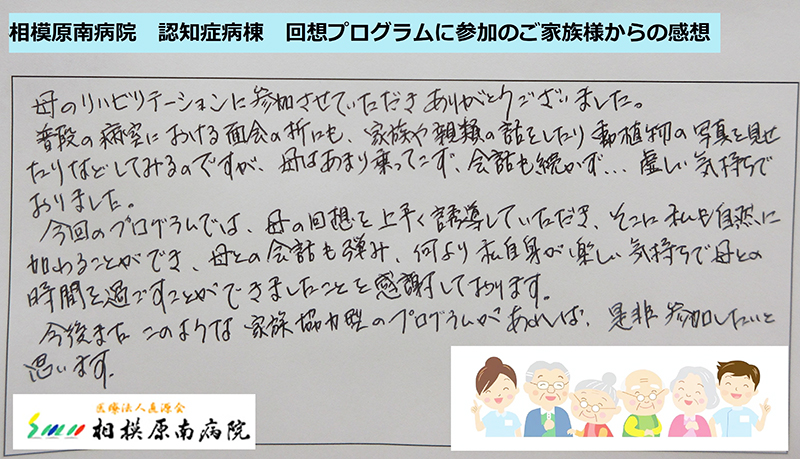 相模原南病院　認知症病棟　回想プログラムに参加のご家族様からの感想
母のリハビリテーションに参加させていただきありがとうございました。
普段の病室における面会の折にも、家族や親類の話をしたり動植物の写真を見せ
たりなどしてみるのですが、母はあまり乗ってこず、会話も続かず… 虚しい気持ちで
おりました。
今回のプログラムでは、母の回想を上手く誘導していただき、そこに私も自然に
加わることができ、母との会話も弾み、何より私自身が楽しい気持ちで母との
時間を過ごすことができましたことを感謝しております。
今後また このような家族協力型のプログラムがあれば、是非参加したいと
思います。
医療法人直源会
相模原南病院